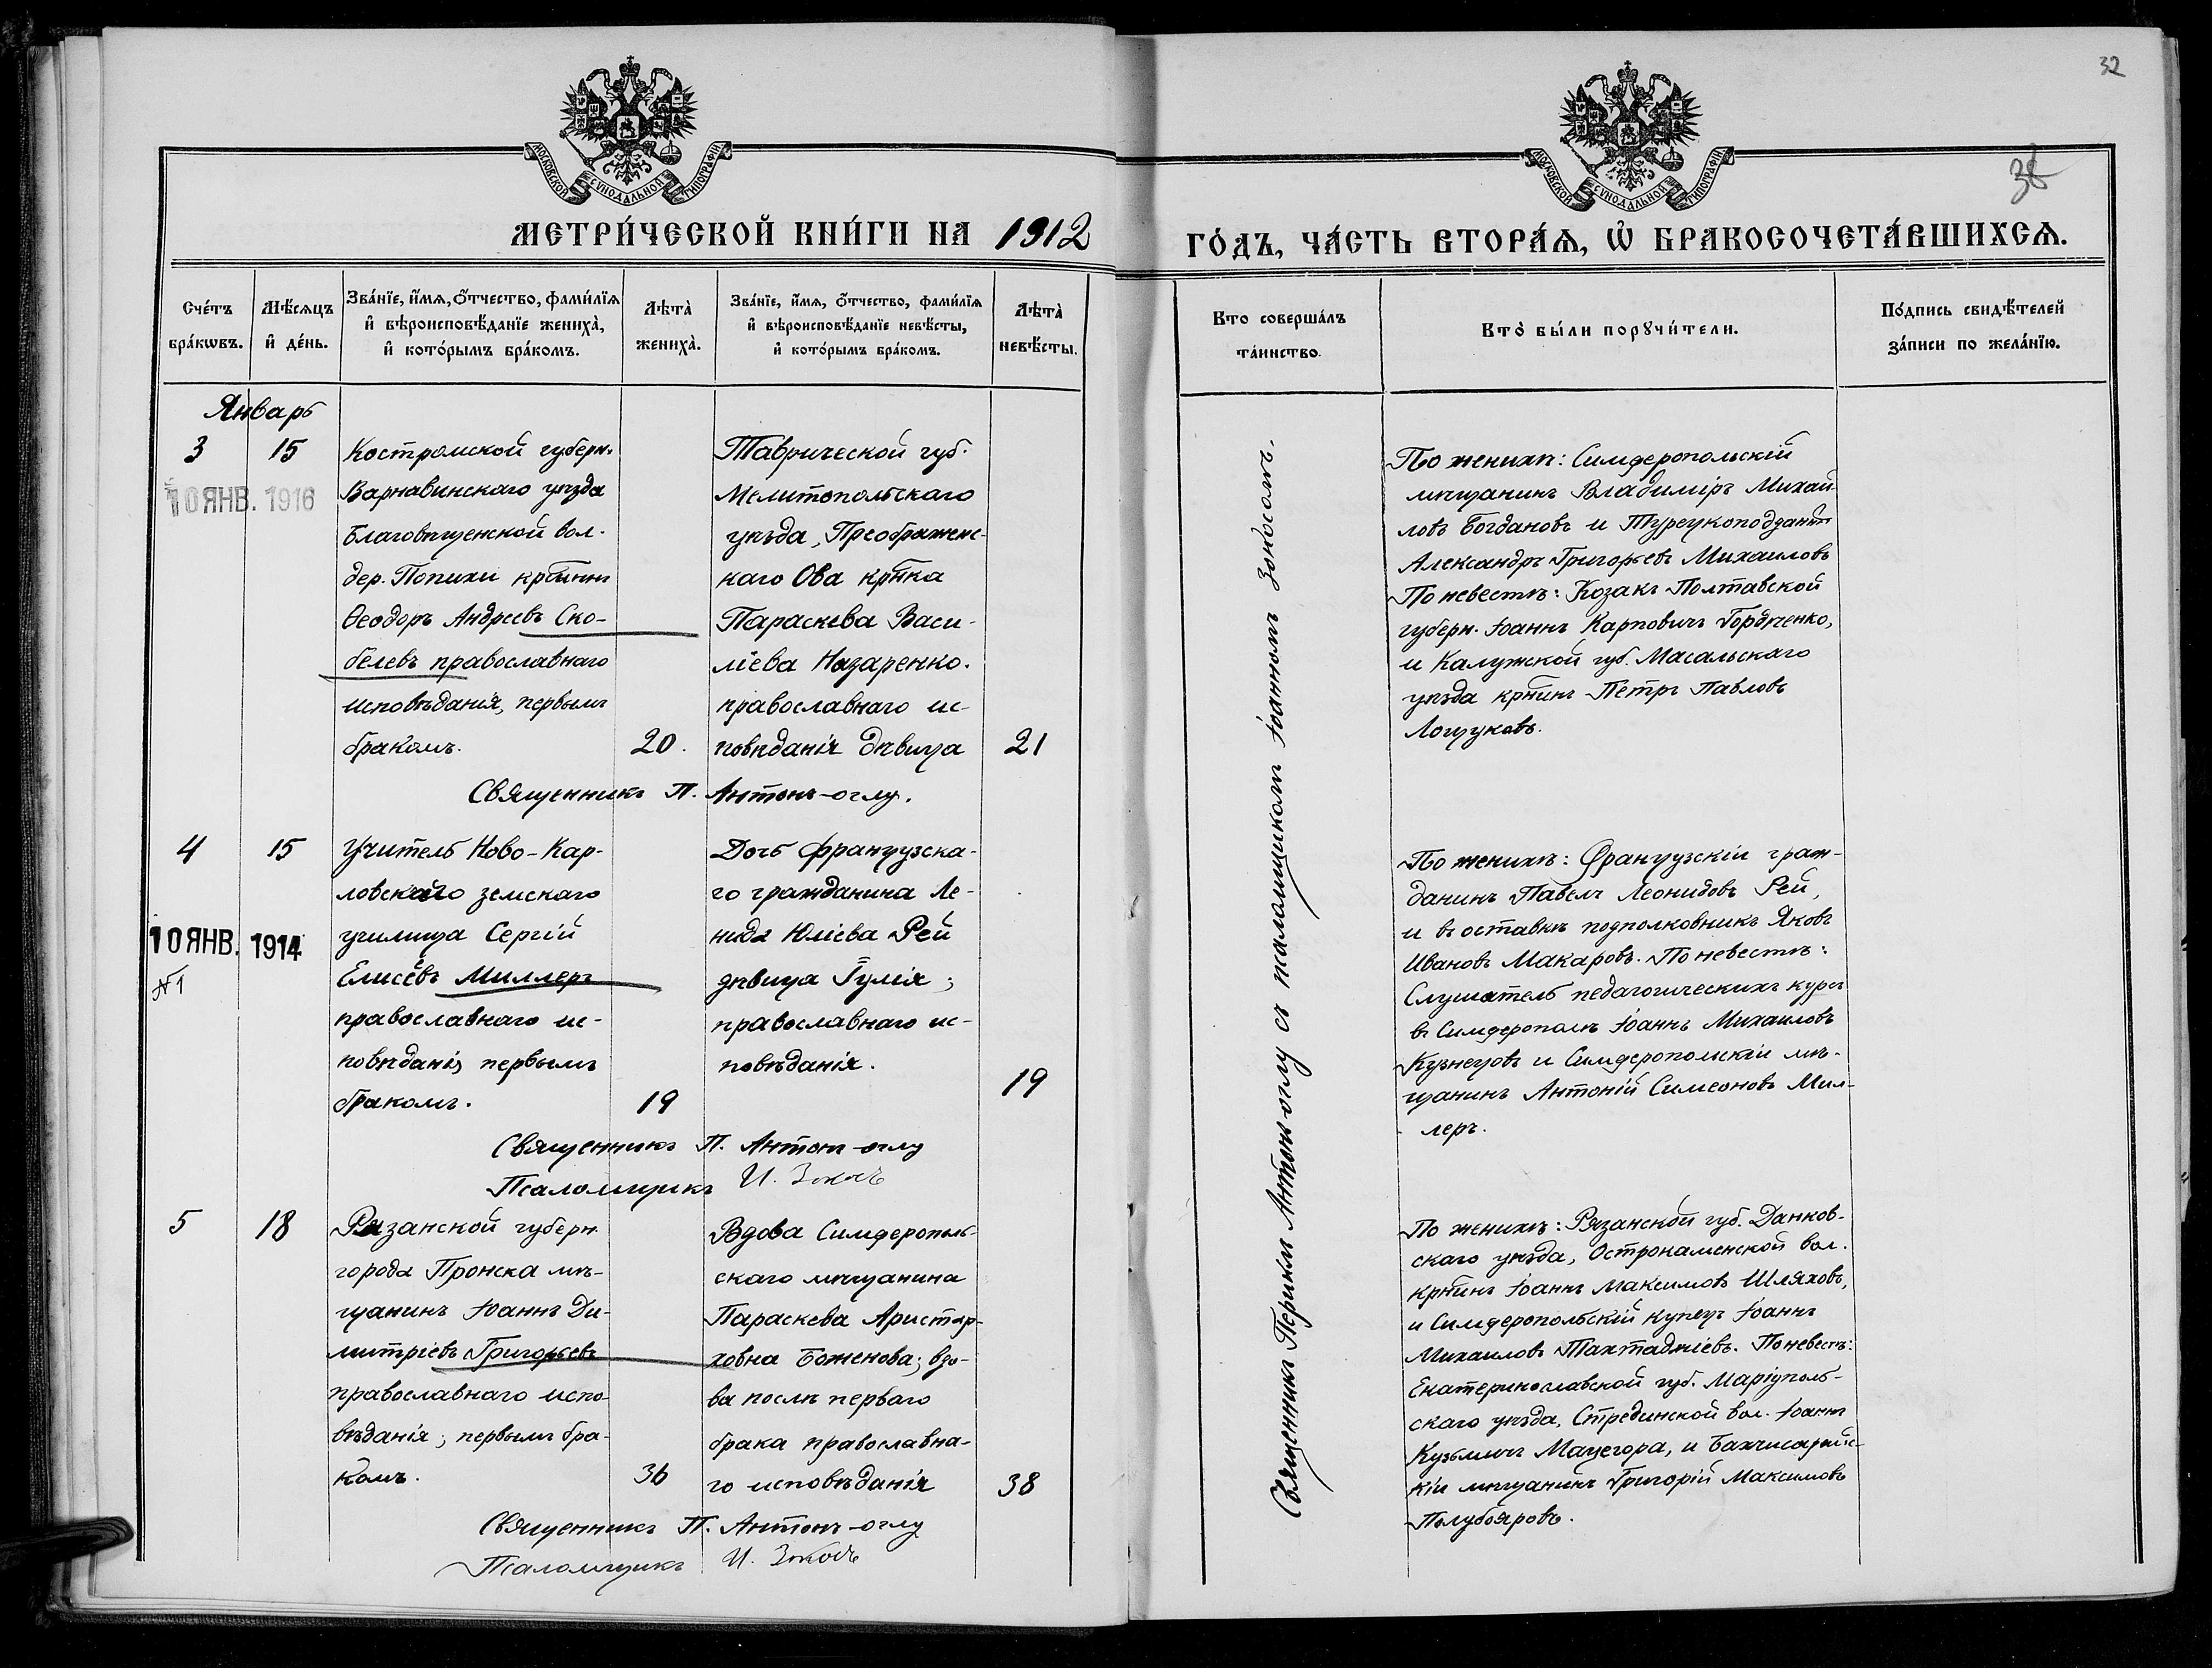 32
38
МОСКОВСКОЙ СУНОДАЛЬНОЙ ТИПОГРАФІИ
МОСКОВСКОЙ СУНОДАЛЬНОЙ ТИПОГРАФІИ
МЕТРИ́ЧЕСКОЙ КНИ́ГИ НА 1912
ГО́ДЪ, ЧА́СТЬ ВТОРА́Я, Ѽ БРАКОСОЧЕТА́ВШИХСѦ.
Сче́тъ бра́кѡвъ.
Мѣ́сяцъ и҆ де́нь.
Зва́нїе, и҆́мѧ, ѻ҆́тчество, фами́лїѧ
и҆ вѣроисповѣ́данїе жениха̀,
и҆ кото́рымъ бра́комъ.
Лѣта̀ жениха̀.
Зва́нїе, и҆́мѧ, ѻ҆́тчество, фами́лїѧ
и҆ вѣроисповѣ́данїе невѣ́сты,
и҆ кото́рымъ бра́комъ.
Лѣта̀ невѣ́сты.
Кто соверша́лъ та́инство.
Кто̀ бы́ли порꙋчи́тели.
По́дпись свидѣ́телей за́писи по жела́нїю.
Январь
3
15
10 ЯНВ. 1916
Костромской губерн.
Варнавинскаго уѣзда
Благовѣщенской вол.
дер. Попихи кр‑нинъ
Ѳеодоръ Андреевъ Ско-
белевъ православнаго
исповѣданія, первымъ
бракомъ.
20.
Таврической губ.
Мелитопольскаго
уѣзда, Преображенс-
каго Ова кр‑нка
Параскева Васи-
ліева Назаренко.
православнаго ис-
повѣданія дѣвица
21
Священникъ П. Антонъ-оглу.
По женихѣ: Симферопольскій
мѣщанинъ Владиміръ Михай-
ловъ Богдановъ и Турецкоподданный
Александръ Григорьевъ Михаиловъ
По невестѣ: Козакъ Полтавской
губерн. Іоаннъ Карповичъ Гордѣенко,
и Калужской губ. Масальскаго
уѣзда кр‑нинъ Петръ Павловъ
Лощуковъ.
4
15
10 ЯНВ. 1914
№ 1
Учитель Ново-Кар-
ловскаго земскаго
училища Сергій
Елисѣевъ Миллеръ
православнаго ис-
повѣданія, первымъ
бракомъ.
19
Дочь французска-
го гражданина Ле-
нида Юліева Рей
дѣвица Гулія;
православнаго ис-
повѣданія.
19
Священникъ П. Антонъ-оглу
Псаломщикъ И. Зоко́съ
По женихѣ: Французскій граж-
данинъ Павелъ Леонидовъ Рей,
и въ оставкѣ подполковникъ Яковъ
Ивановъ Макаровъ. По невестѣ:
Слушатель педагогическихъ курсъ
въ Симферополѣ Іоаннъ Михаиловъ
Кузнецовъ и Симферопольскій мѣ-
щанинъ Антоній Симеоновъ Мил-
леръ.
5
18
Рязанской губерн.
города Пронска мѣ-
щанинъ Іоаннъ Ди-
митріевъ Григорьевъ
православнаго испо-
вѣданія; первымъ бра-
комъ.
36
Вдова Симферополь-
скаго мѣщанина
Параскева Аристар-
ховна Боженова; вдо-
ва послѣ перваго
брака православна-
го исповѣданія
38
Священникъ П. Антонъ-оглу
Псаломщикъ И. Зокосъ
По женихѣ: Рязанской губ. Данков-
скаго уѣзда, Острокаменской вол.
кр‑нинъ Іоаннъ Максимовъ Шляховъ,
и Симферопольскій купецъ Іоаннъ
Михаиловъ Тахтаджіевъ. По невестѣ:
Екатеринославской губ. Маріуполь-
скаго уѣзда, Стрединской вол. Іоаннъ
Кузьмичъ Мацегора, и Бахчисарайс-
кій мѣщанинъ Григорій Максимовъ
Полубояровъ.
Священникъ Периклъ Антонъ-оглу съ псаломщикомъ Іоанномъ Зокосомъ.